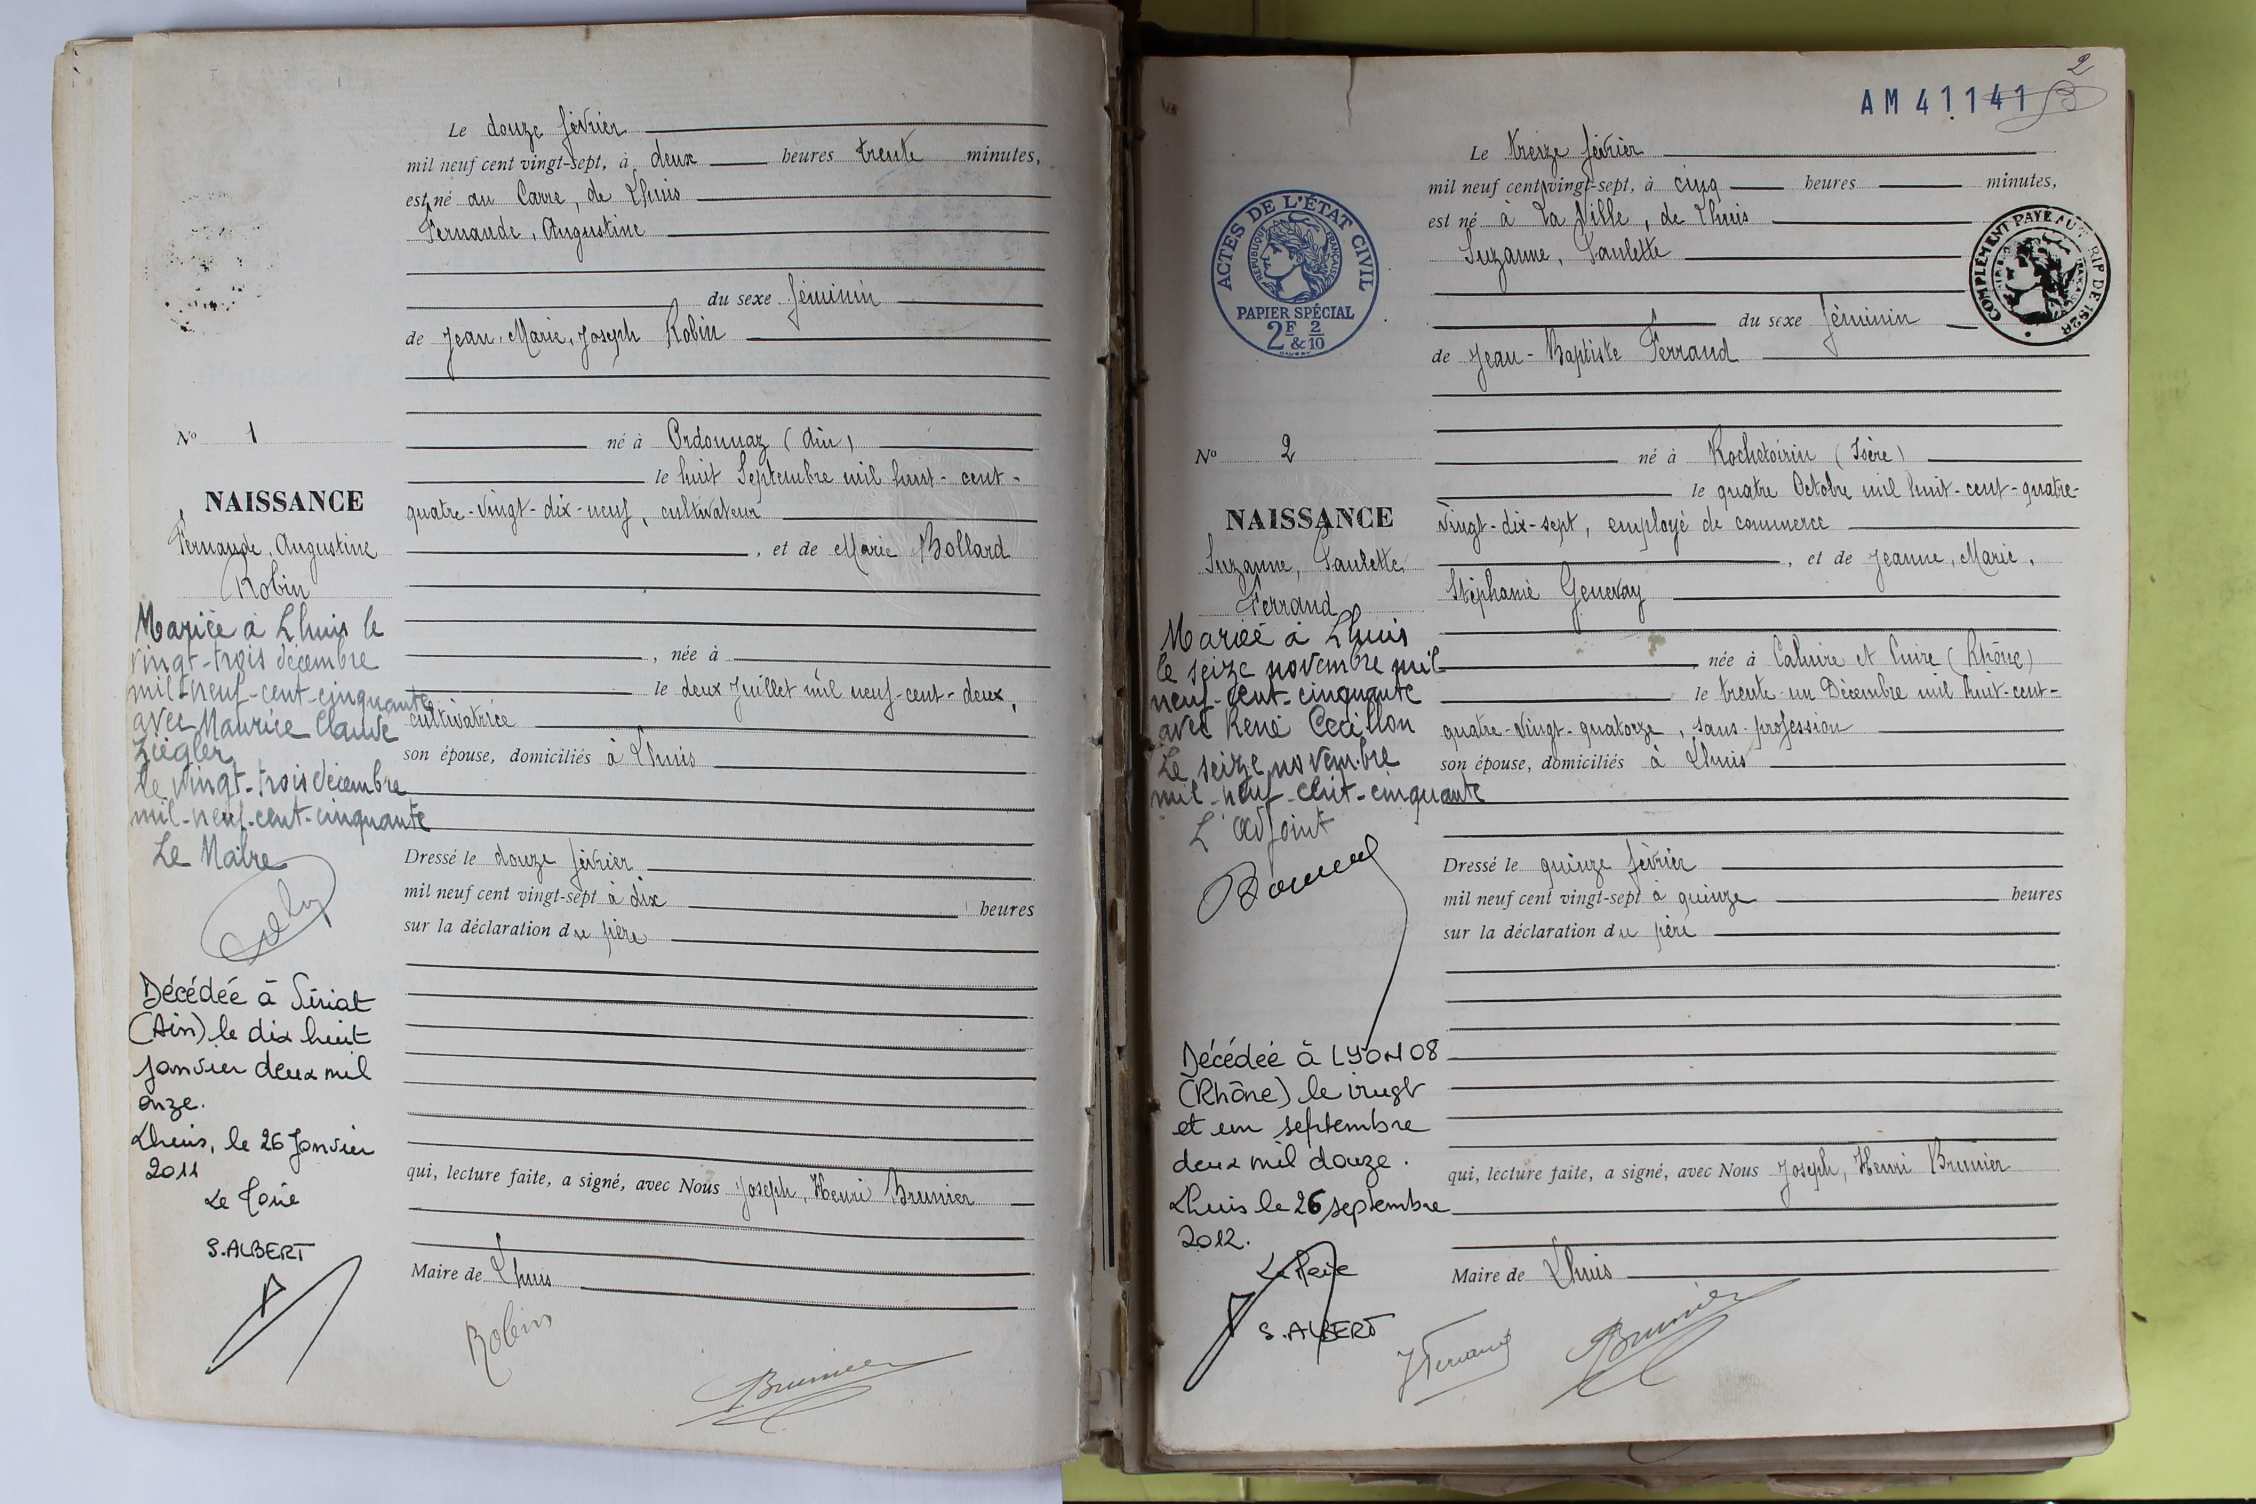 Le douze février
mil neuf cent vingt-sept, à deux heures trente minutes,
est né au Carre, de Lhuis
Fernande, Augustine
du sexe féminin
de Jean, Marie, Joseph Robin
né à Ordonnaz (Ain)
le huit Septembre mil huit-cent-
quatre-vingt-dix-neuf, cultivateur
, et de Marie Bollard
, née à
le deux Juillet mil neuf-cent-deux,
cultivatrice
son épouse, domiciliés à Lhuis
Dressé le douze février
mil neuf cent vingt-sept à dix heures
sur la déclaration du père
qui, lecture faite, a signé, avec Nous Joseph, Henri Brunier
Maire de Lhuis
Robin
Brunier
No 1
NAISSANCE
Fernande, Augustine
Robin
Mariée à Lhuis le
vingt-trois décembre
mil-neuf-cent-cinquante
avec Maurice Claude
Ziegler
Le vingt-trois décembre
mil-neuf-cent-cinquante
Le Maire
Décédée à Viriat
(Ain) le dix huit
janvier deux mil
onze.
Lhuis, le 26 Janvier
2011
Le Maire
S. ALBERT
AM 41141
2
Le treize février
mil neuf cent vingt-sept, à cinq heures minutes,
est né à La Ville, de Lhuis
Suzanne, Paulette
du sexe féminin
de Jean-Baptiste Ferrand
né à Rochetoirin (Isère)
le quatre Octobre mil huit-cent-quatre-
vingt-dix-sept, employé de commerce
, et de Jeanne, Marie,
Stéphanie Genevay
née à Caluire et Cuire (Rhône)
le trente-un Décembre mil huit-cent-
quatre-vingt-quatorze, sans profession
son épouse, domiciliés à Lhuis
Dressé le quinze février
mil neuf cent vingt-sept à quinze heures
sur la déclaration du père
qui, lecture faite, a signé, avec Nous Joseph, Henri Brunier
Maire de Lhuis
JFerrand
Brunier
ACTES DE L'ÉTAT CIVIL
RÉPUBLIQUE FRANÇAISE
PAPIER SPÉCIAL
2F & 2/10
COMPLÉMENT PAYÉ AU TRIP DE 1926
No 2
NAISSANCE
Suzanne, Paulette
Ferrand
Mariée à Lhuis
le seize novembre mil
neuf-cent-cinquante
avec René Cecillon
Le seize novembre
mil-neuf-cent-cinquante
L'adjoint
Décédée à LYON 08
(Rhône) le vingt
et un septembre
deux mil douze.
Lhuis le 26 septembre
2012.
Le Maire
S. ALBERT